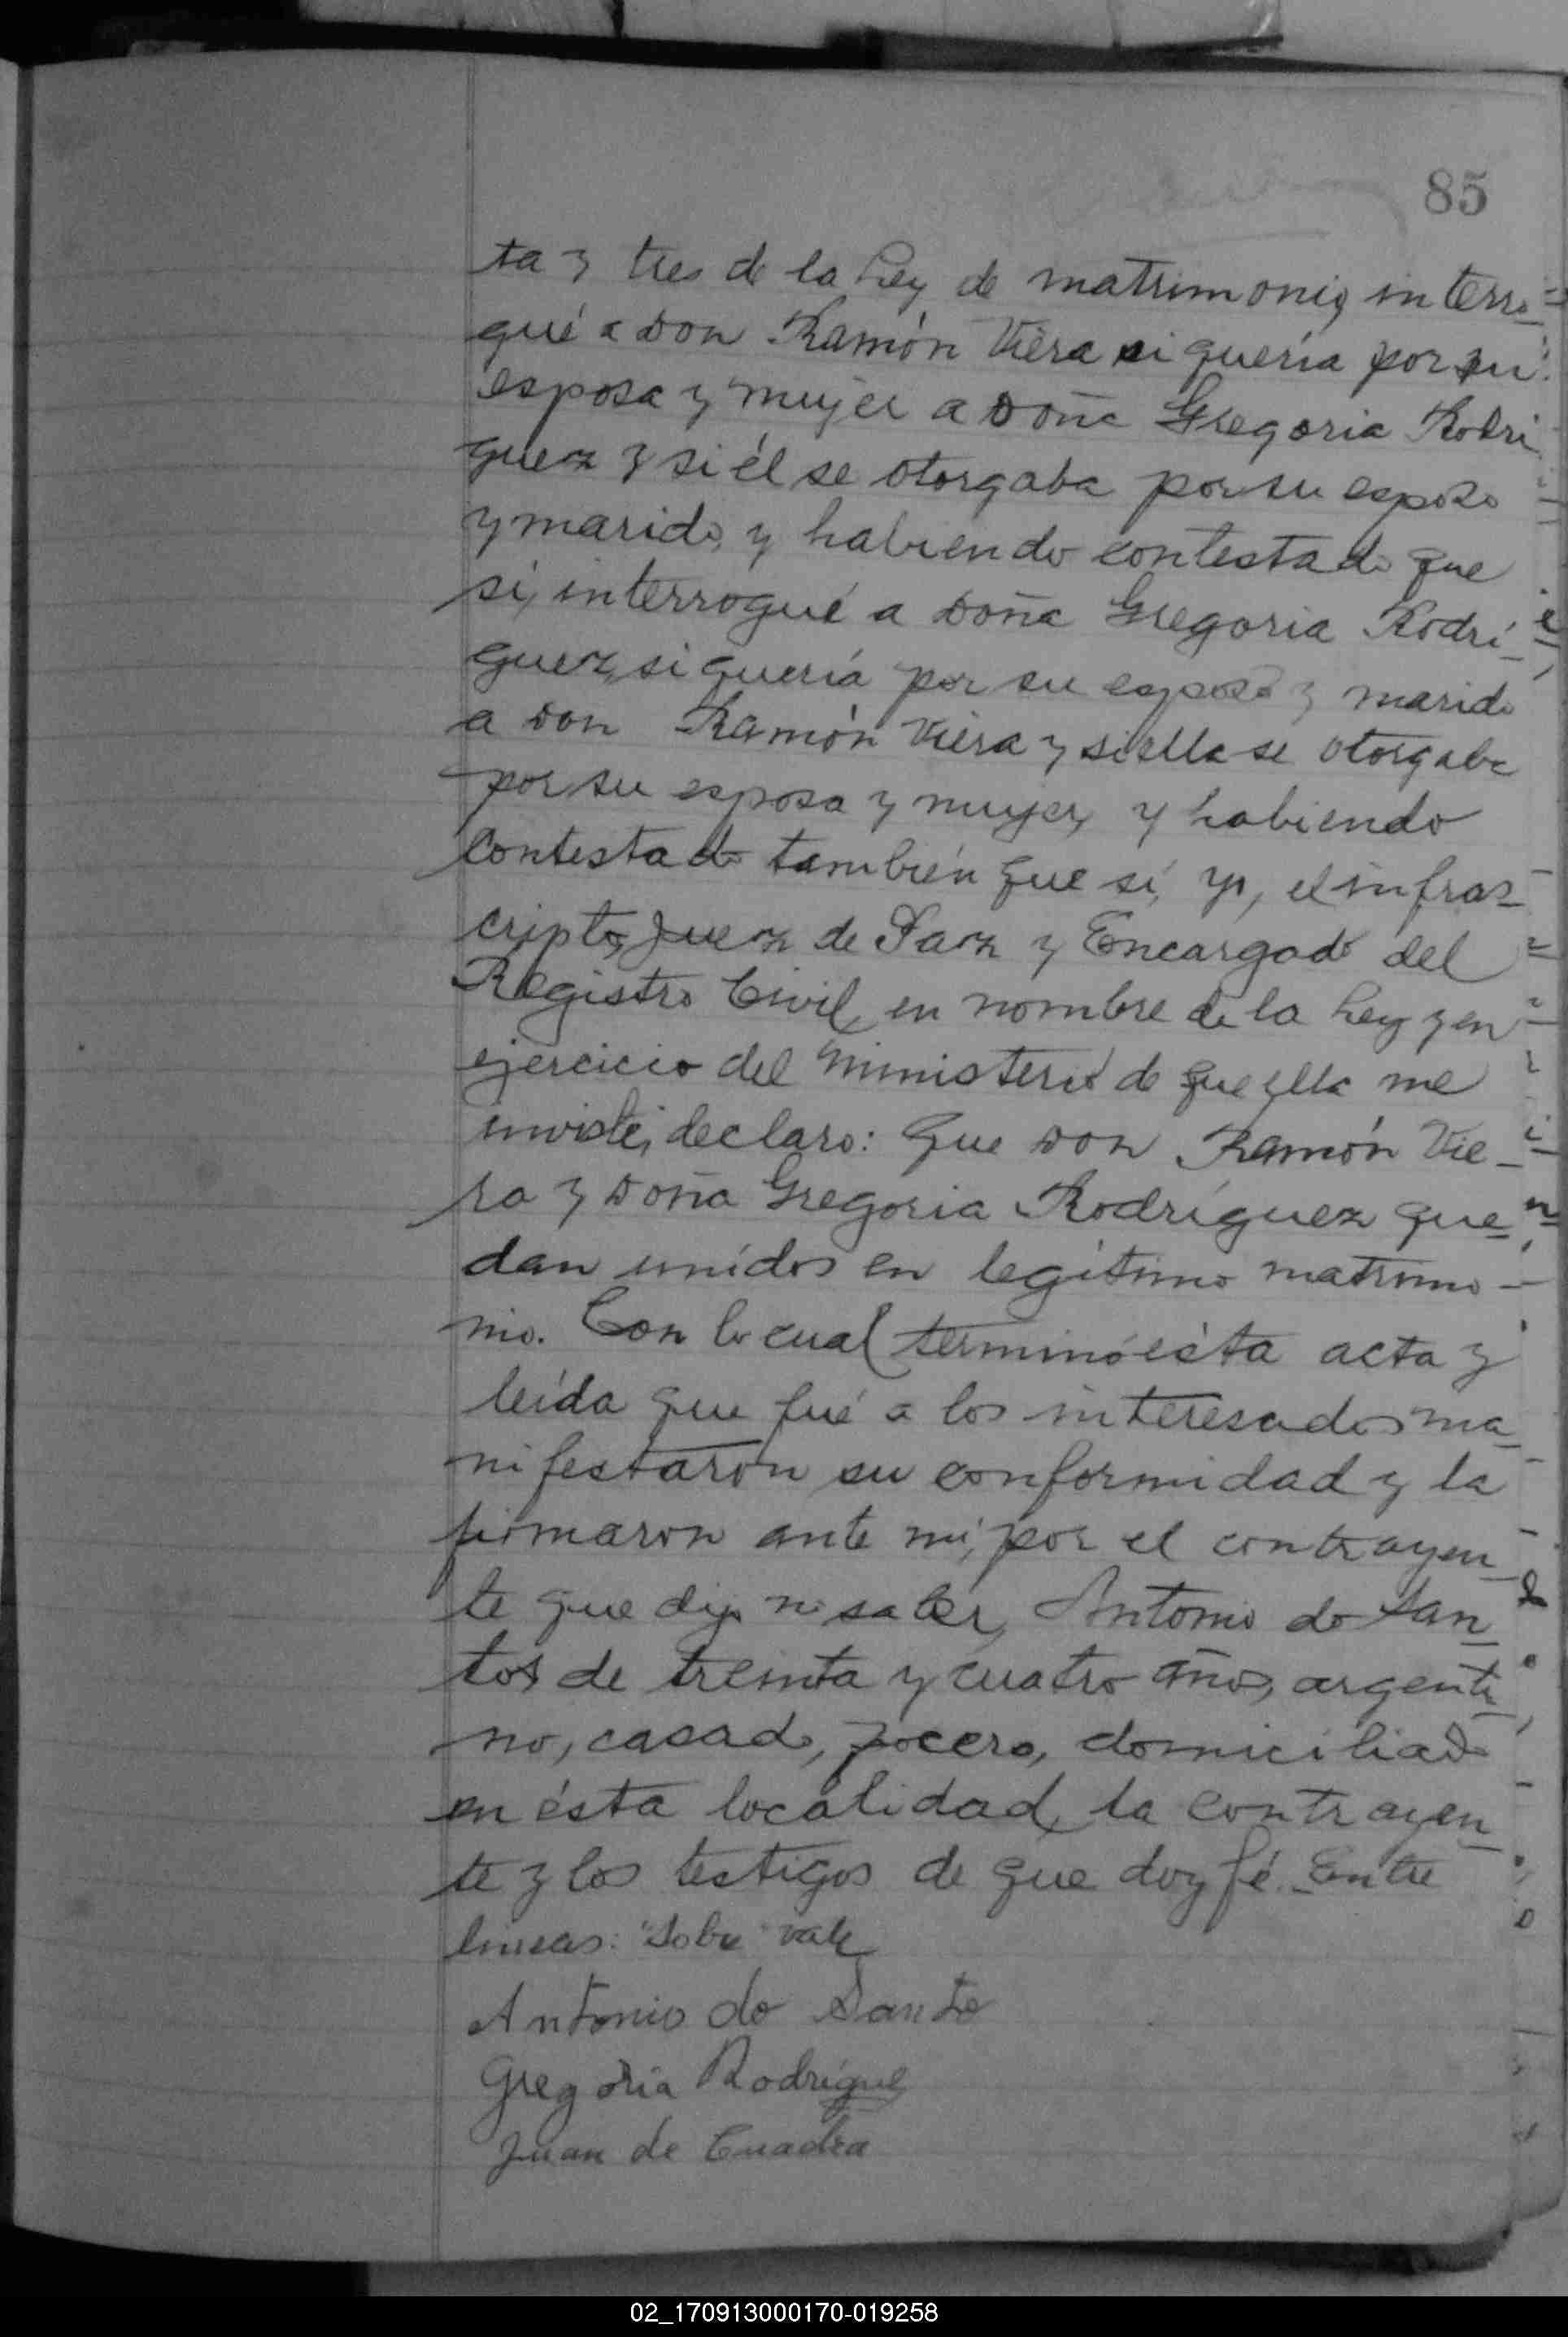 85
ta y tres de la Ley de matrimonio, interro-
gué a Don Ramón Viera si quería por su
esposa y mujer a Doña Gregoria Rodri
guez y si él se otorgaba por su esposo
y marido, y habiendo contestado que
sí, interrogué a Doña Gregoria Rodrí-
guez, si quería por su esposo y marido
a Don Ramón Viera y si ella se otorgaba
por su esposa y mujer, y habiendo
contestado también que sí, yo, el infras-
cripto, Juez de Paz y Encargado del
Registro Civil, en nombre de la Ley y en
ejercicio del ministerio de que ella me
inviste, declaro: Que Don Ramón Vie-
ra y Doña Gregoria Rodríguez que-
dan unidos en legítimo matrimo-
nio. Con lo cual terminó ésta acta y
leída que fué a los interesados ma-
nifestaron su conformidad y la
firmaron ante mí, por el contrayen-
te que dijo no saber, Antonio do San-
tos de treinta y cuatro años, argenti-
no, casado, pocero, domiciliado
en ésta localidad, la contrayen-
te y los testigos de que doy fé. Entre
lineas: "Sobre" vale
Antonio do Santo
Gregoria Rodríguez
Juan de Cuadra
02_170913000170-019258